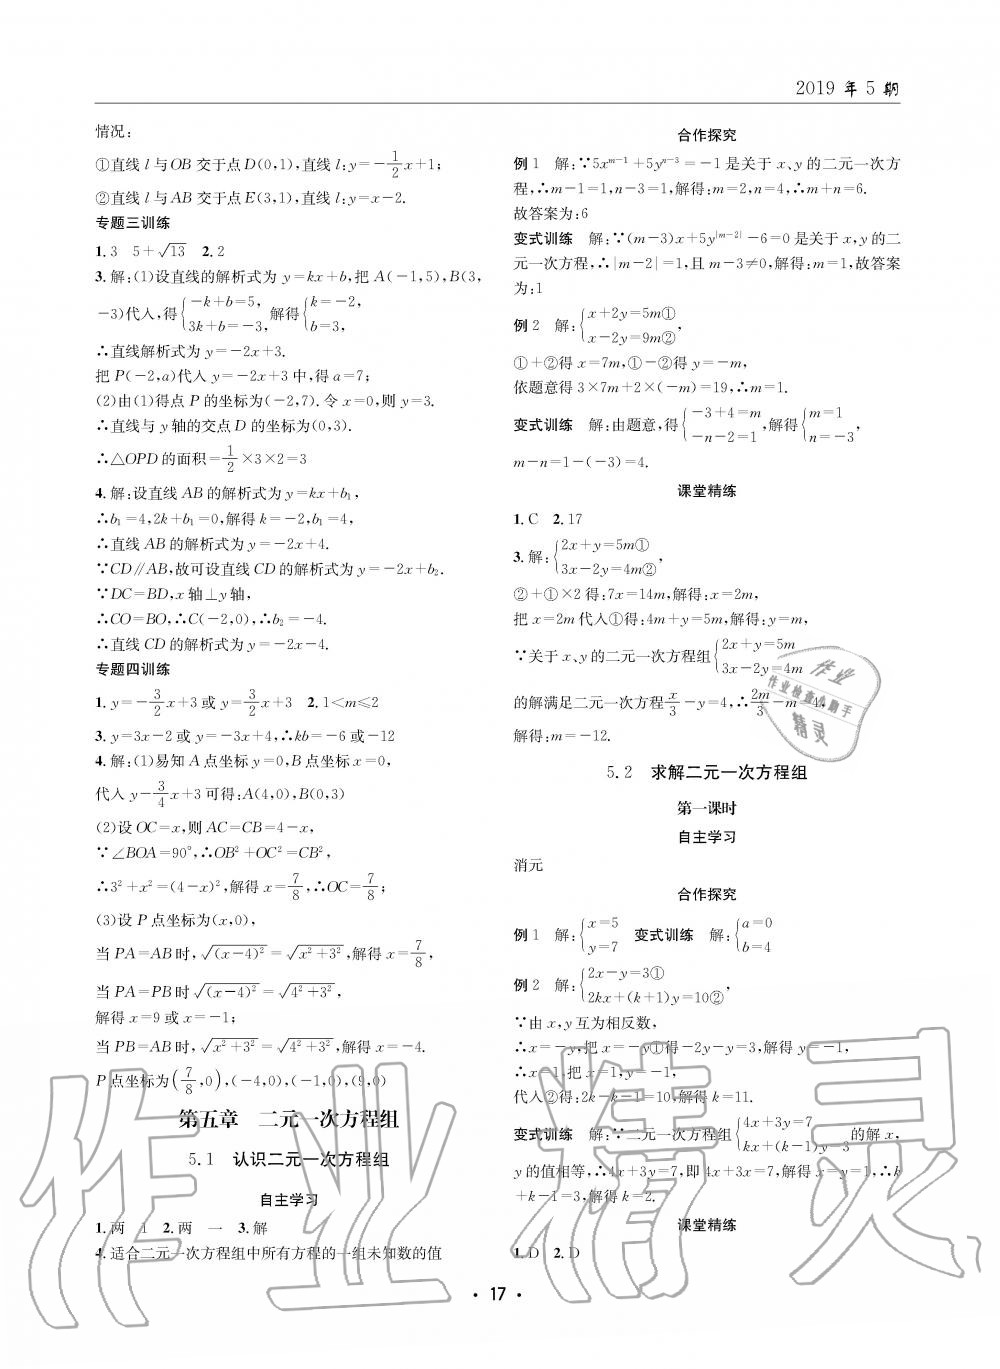 2019 年 5 期
情况:
①直线 l 与OB 交于点D(0,1),直线 l:y=-1/2x+1;
②直线 l 与AB 交于点E(3,1),直线 l:y=x-2.
专题三训练
1.3 5+√13 2.2
3.解:(1)设直线的解析式为 y=kx+b,把 A(-1,5),B(3,
-3)代入,得{-k+b=5, 3k+b=-3, 解得{k=-2, b=3,
∴直线解析式为 y=-2x+3.
把 P(-2,a)代入 y=-2x+3中,得 a=7;
(2)由(1)得点 P 的坐标为(-2,7).令 x=0,则 y=3.
∴直线与 y 轴的交点 D 的坐标为(0,3).
∴△OPD 的面积=1/2×3×2=3
4.解:设直线 AB 的解析式为 y=kx+b₁,
∴b₁=4,2k+b₁=0,解得 k=-2,b₁=4,
∴直线 AB 的解析式为 y=-2x+4.
∵CD∥AB,故可设直线 CD 的解析式为 y=-2x+b₂.
∵DC=BD,x 轴⊥y 轴,
∴CO=BO,∴C(-2,0),∴b₂=-4.
∴直线 CD 的解析式为 y=-2x-4.
专题四训练
1.y=-3/2x+3 或 y=3/2x+3 2.1<m≤2
3.y=3x-2 或 y=-3x+4,∴kb=-6 或-12
4.解:(1)易知 A 点坐标 y=0,B 点坐标 x=0,
代入 y-3/4x+3 可得:A(4,0),B(0,3)
(2)设 OC=x,则 AC=CB=4-x,
∵∠BOA=90°,∴OB²+OC²=CB²,
∴3²+x²=(4-x)²,解得 x=7/8,∴OC=7/8;
(3)设 P 点坐标为(x,0),
当 PA=AB 时,√(x-4)²=√x²+3²,解得 x=7/8,
当 PA=PB 时√(x-4)²=√4²+3²,
解得 x=9 或 x=-1;
当 PB=AB 时,√x²+3²=√4²+3²,解得 x=-4.
P 点坐标为(7/8,0),(-4,0),(-1,0),(9,0)
第五章 二元一次方程组
5.1 认识二元一次方程组
自主学习
1.两 1 2.两 一 3.解
4.适合二元一次方程组中所有方程的一组未知数的值
合作探究
例 1 解:∵5xᵐ⁻¹+5yⁿ⁻³=-1 是关于 x、y 的二元一次方
程,∴m-1=1,n-3=1,解得:m=2,n=4,∴m+n=6.
故答案为:6
变式训练 解:∵(m-3)x+5y^|m-2|-6=0 是关于 x,y 的二
元一次方程,∴|m-2|=1,且 m-3≠0,解得:m=1,故答案
为:1
例 2 解:{x+2y=5m① x-2y=9m②,
①+②得 x=7m,①-②得 y=-m,
依题意得 3×7m+2×(-m)=19,∴m=1.
变式训练 解:由题意,得{-3+4=m -n-2=1,解得{m=1 n=-3,
m-n=1-(-3)=4.
课堂精练
1.C 2.17
3.解:{2x+y=5m① 3x-2y=4m②,
②+①×2 得:7x=14m,解得:x=2m,
把 x=2m 代入①得:4m+y=5m,解得:y=m,
∵关于 x、y 的二元一次方程组{2x+y=5m 3x-2y=4m
的解满足二元一次方程x/3-y=4,∴2m/3-m=4.
解得:m=-12.
5.2 求解二元一次方程组
第一课时
自主学习
消元
合作探究
例 1 解:{x=5 y=7 变式训练 解:{a=0 b=4
例 2 解:{2x-y=3① 2kx+(k+1)y=10②,
∵由 x,y 互为相反数,
∴x=-y,把 x=-y①得-2y-y=3,解得 y=-1,
∴x=1,把 x=1,y=-1,
代入②得:2k-k-1=10,解得 k=11.
变式训练 解:∵二元一次方程组{4x+3y=7 kx+(k-1)y=3的解 x,
y 的值相等,∴4x+3y=7,即 4x+3x=7,解得 x=y=1,∴k
+k-1=3,解得 k=2.
课堂精练
1.D 2.D
· 17 ·
作业
作业检查小助手
精灵
作业精灵